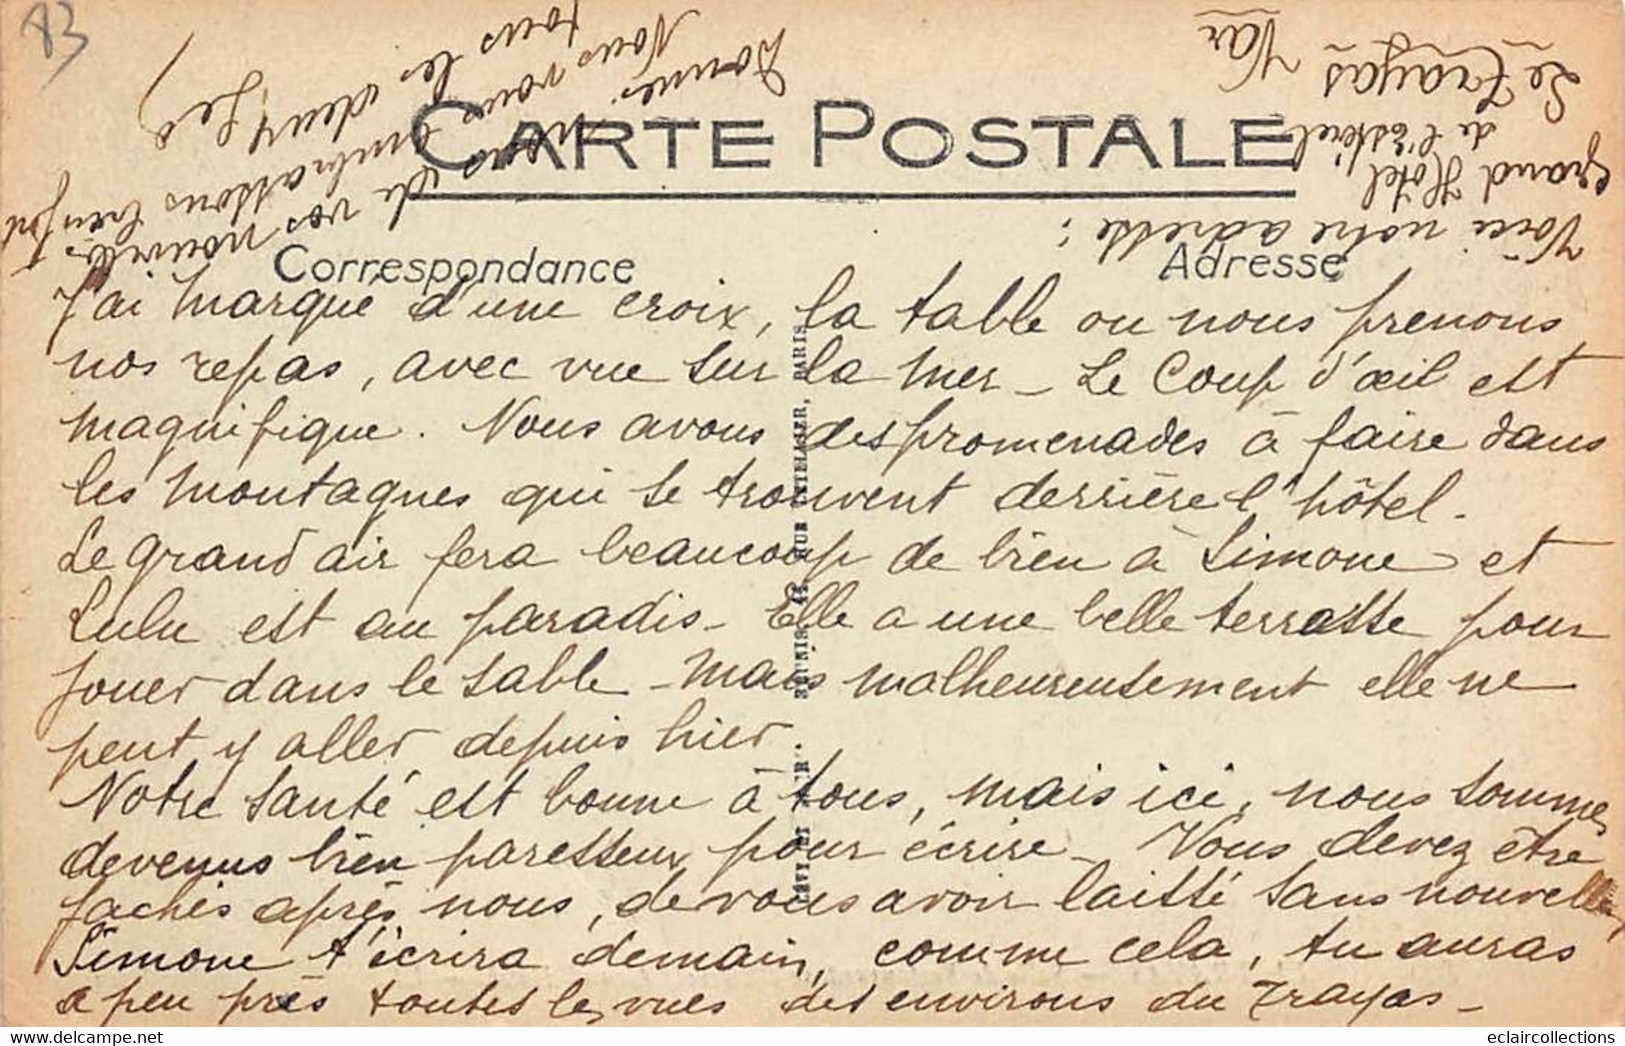 83
CARTE POSTALE
Correspondance
Adresse
J'ai marqué d'une croix, la table ou nous prenons
nos repas, avec vue sur la mer - Le Coup d'œil est
magnifique. Nous avons des promenades à faire dans
les montagnes qui se trouvent derrière l'hôtel -
Le grand air fera beaucoup de bien à Simone et
Lulu est au paradis - Elle a une belle terrasse pour
jouer dans le sable - mais malheureusement elle ne
peut y aller depuis hier.
Notre santé est bonne à tous, mais ici, nous sommes
devenus bien paresseux pour écrire - Vous devez être
fachés après nous, de vous avoir laissé sans nouvelles
Simone t'écrira demain, comme cela, tu auras
a peu près toutes les vues des environs du Trayas -
Voici notre adresse :
Grand Hôtel,
de l'Estérel
Le Trayas Var
Donne nous de vos nouvelles
Nous vous embrassons bien fort
tous les deux, Leo
LÉVY ET RÉUNIS, 44, RUE LETELLIER, PARIS
eclaircollections